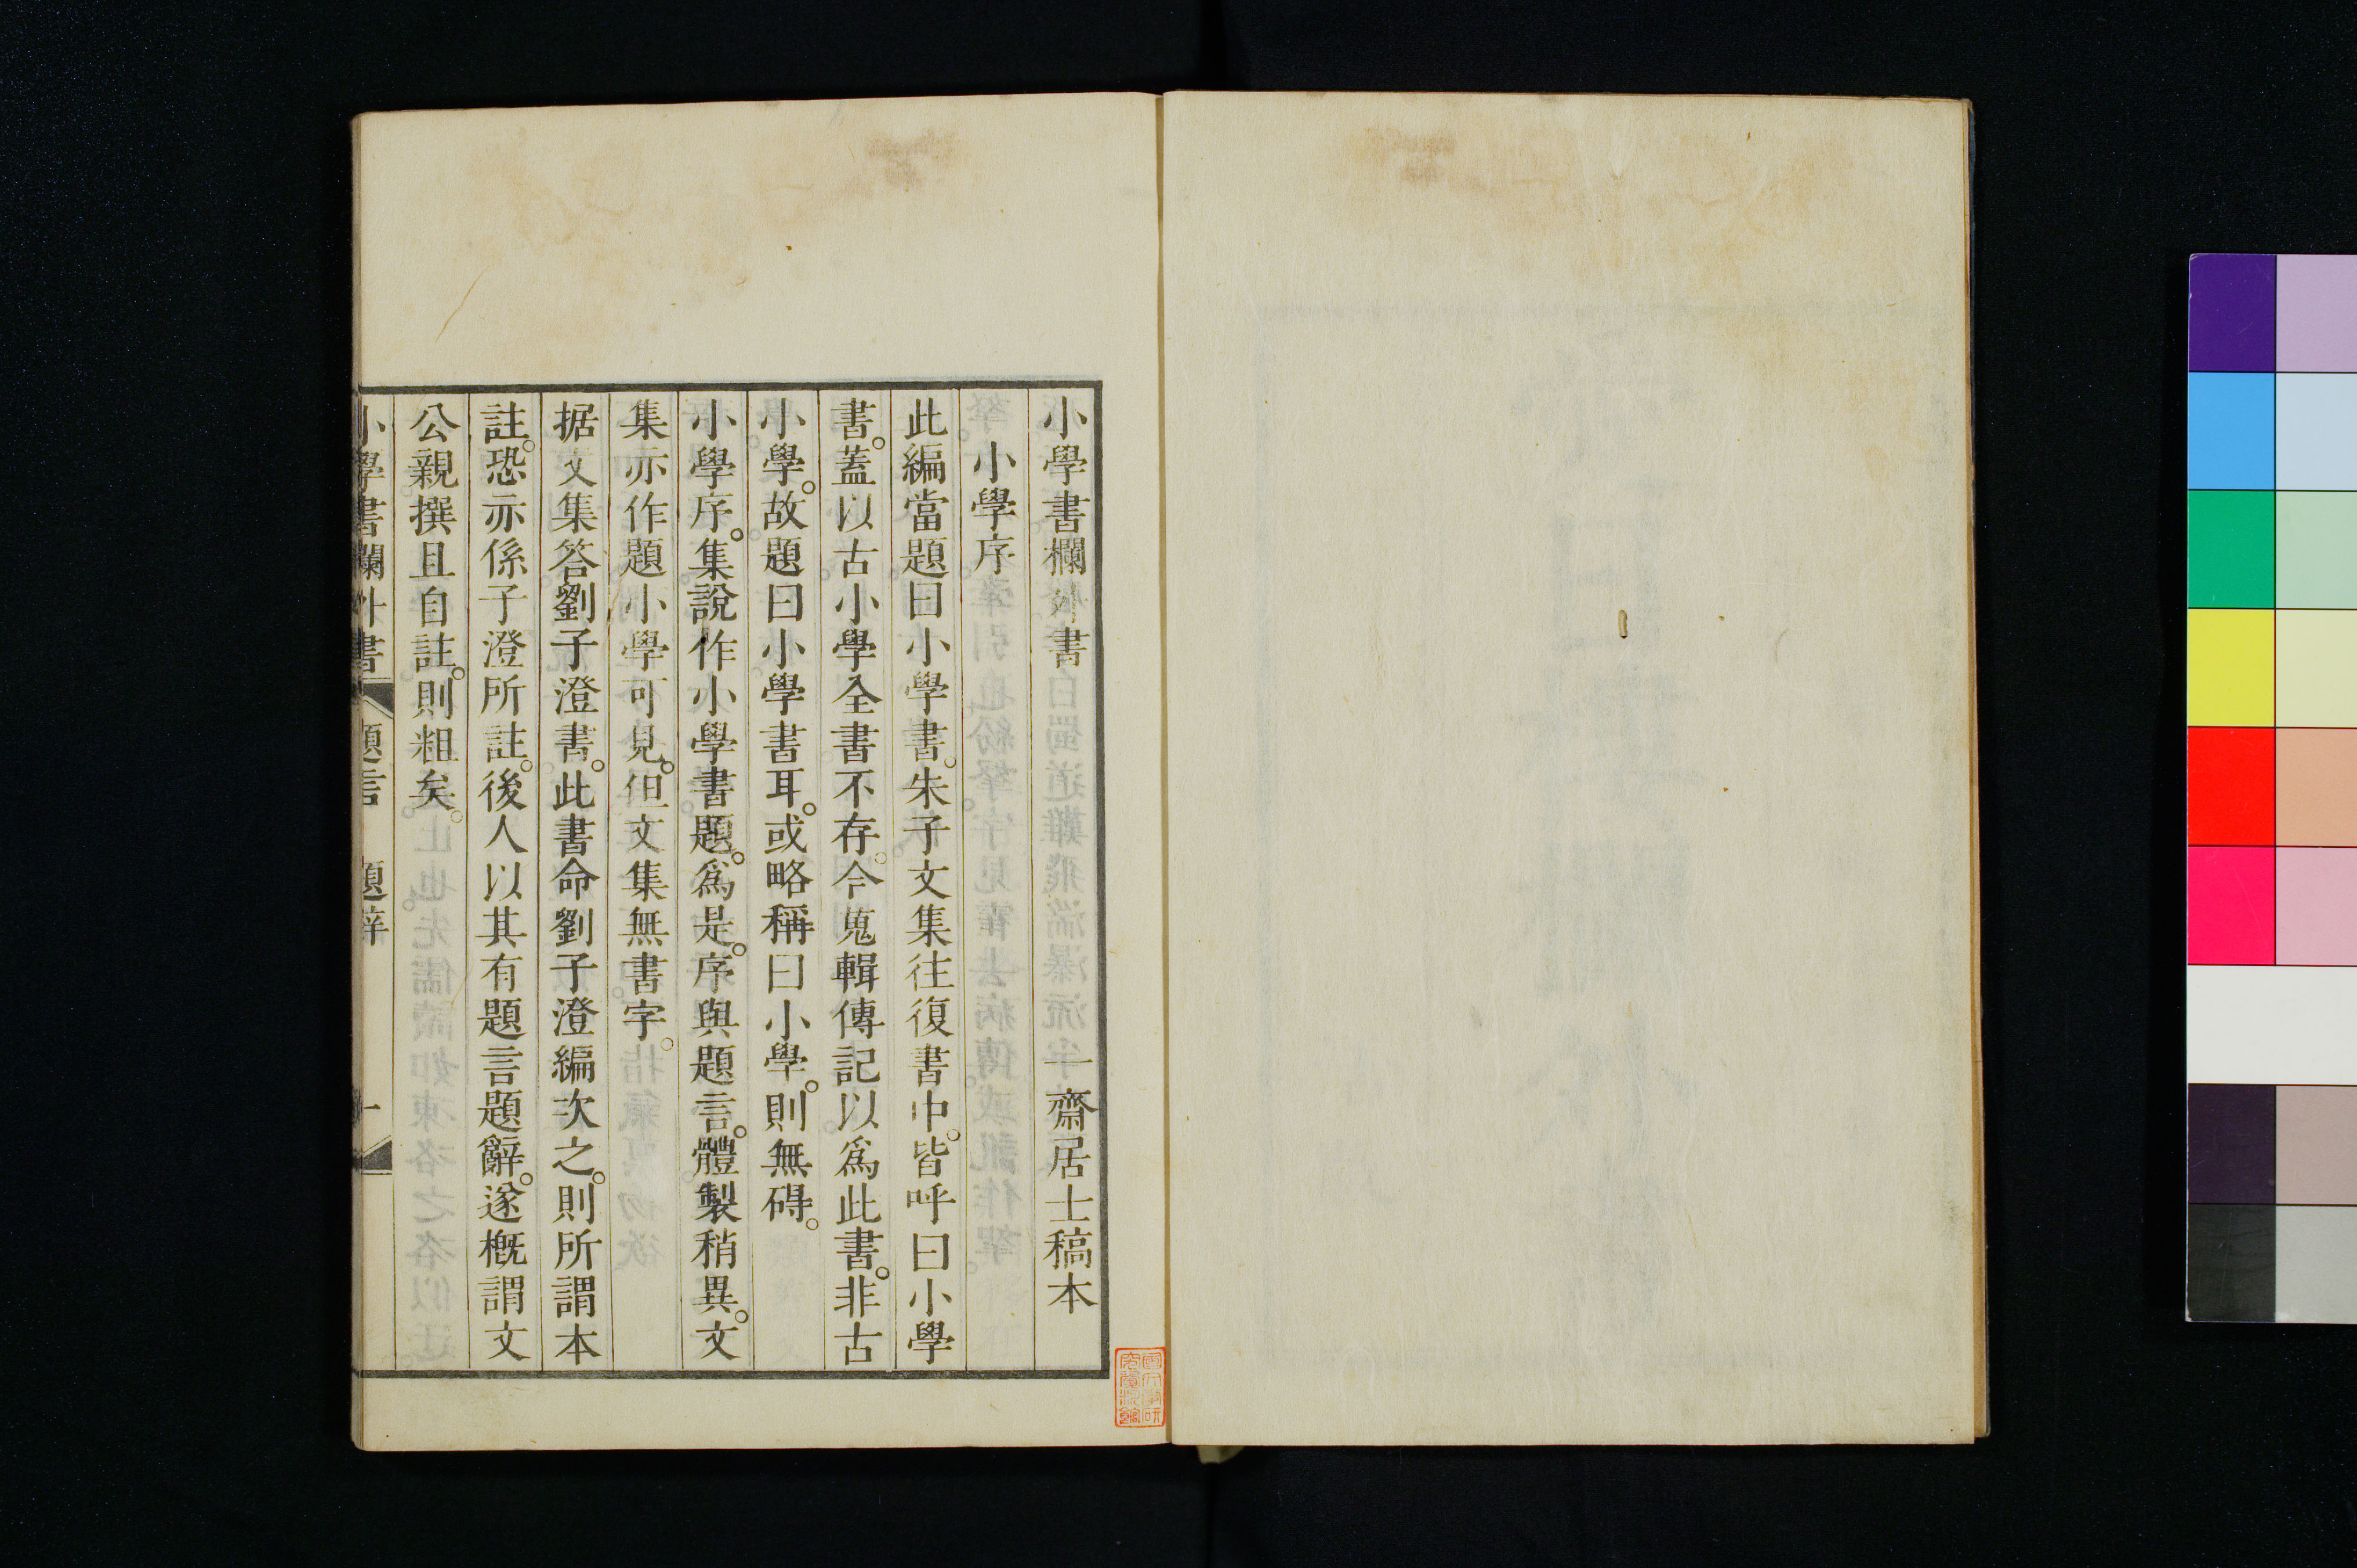 小學書欄外書　一齋居士稿本
小學序
此編當題曰小學書。朱子文集往復書中。皆呼曰小學
書。蓋以古小學全書不存。今蒐輯傳記以爲此書。非古
小學。故題曰小學書耳。或略稱曰小學。則無碍。
小學序。集說作小學書題。爲是。序與題言。體製稍異。文
集亦作題小學可見。但文集無書字。
据文集答劉子澄書。此書命劉子澄編次之。則所謂本
註。恐亦係子澄所註。後人以其有題言題辭。遂槪謂文
公親撰且自註。則粗矣。
小學書欄外書　題言　題辭　一